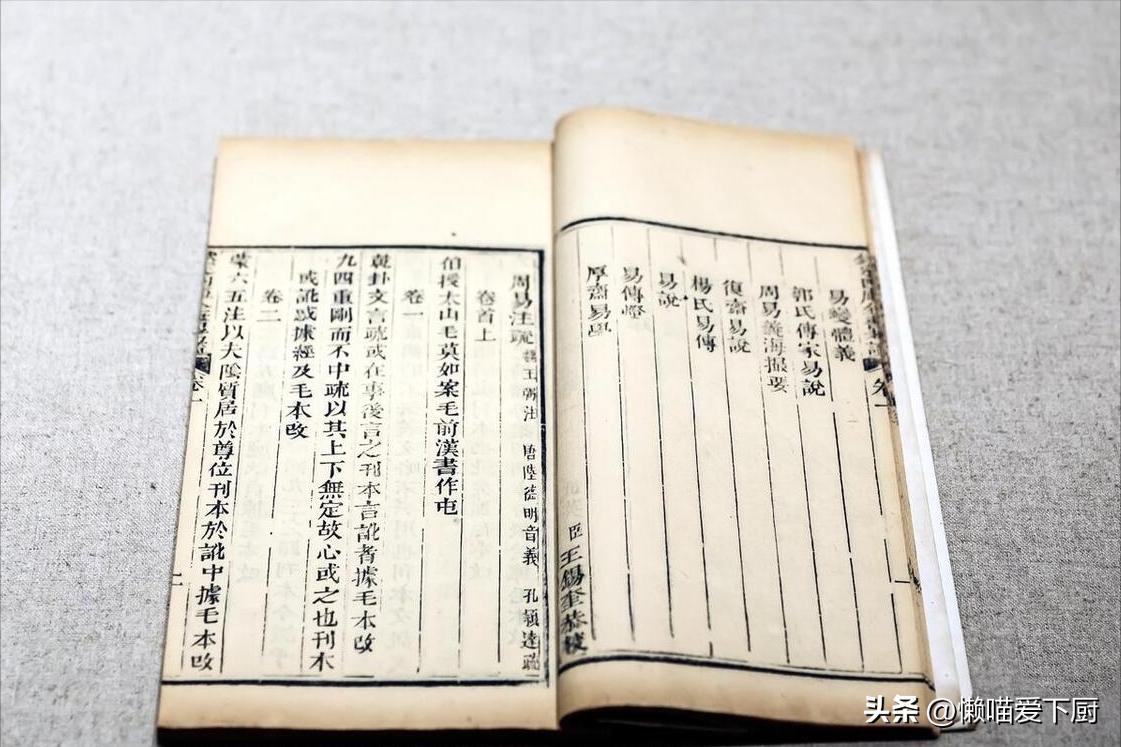 卷一
易變體義
郭氏傳家易說
周易義海撮要
復齋易說
楊氏易傳
易說
易傳燈
厚齋易學
臣王錫奎恭校
周易注疏 魏王弼注 唐陸德明音義 孔穎達疏
卷首上
伯授太山毛莫如案毛前漢書作屯
卷一
乾卦文言疏或在事後言之刊本言訛者據毛本改
九四重剛而不中疏以其上下無定故心或之也刊本
或訛惑據經及毛本改
卷二
蒙六五注以夫陰質居於尊位刊本於訛中據毛本改
卷一
头条 @懒喵爱下厨